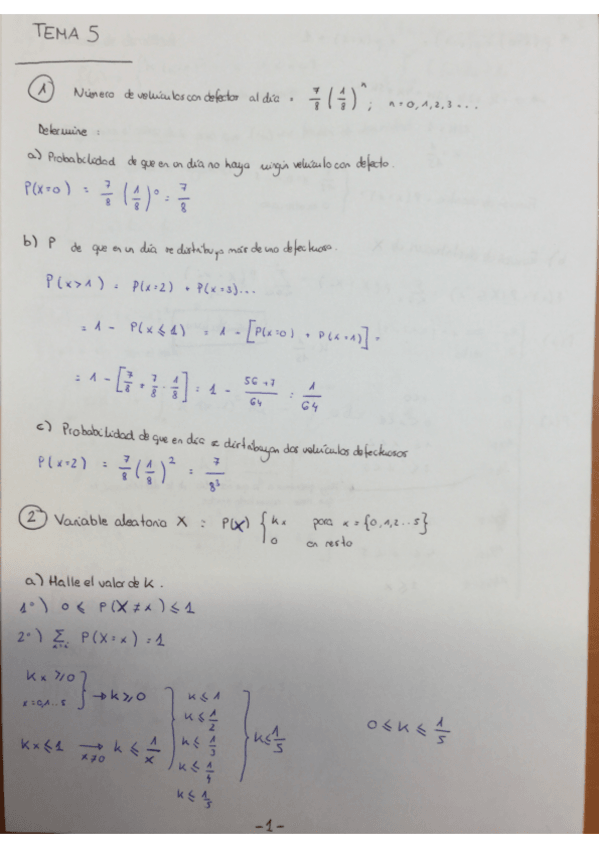 TEMA 5
① Número de vehículos con defectos al día = 7/8 (1/8)^n ; n = 0,1,2,3...
Determine :
a) Probabilidad de que en un día no haya ningún vehículo con defecto.
P(x=0) = 7/8 (1/8)^0 = 7/8
b) P de que en un día se distribuya más de uno defectuoso.
P(x>1) = P(x=2) + P(x=3)...
= 1 - P(x≤1) = 1 - [P(x=0) + P(x=1)] =
= 1 - [7/8 + 7/8 · 1/8] = 1 - (56+7)/64 = 1/64
c) Probabilidad de que en día se distribuyan dos vehículos defectuosos
P(x=2) = 7/8 (1/8)^2 = 7/8^3
② Variable aleatoria X : P(X) { kx para x = {0,1,2..5}
0 en resto
a) Halle el valor de k.
1º) 0 ≤ P(X≠x) ≤ 1
2º) Σ P(X=x) = 1
kx ≥ 0
x=0,1..5 } → k ≥ 0
kx ≤ 1 → x≠0 k ≤ 1/x
k ≤ 1
k ≤ 1/2
k ≤ 1/3
k ≤ 1/4
k ≤ 1/5
} k ≤ 1/5
0 ≤ k ≤ 1/5
-1-